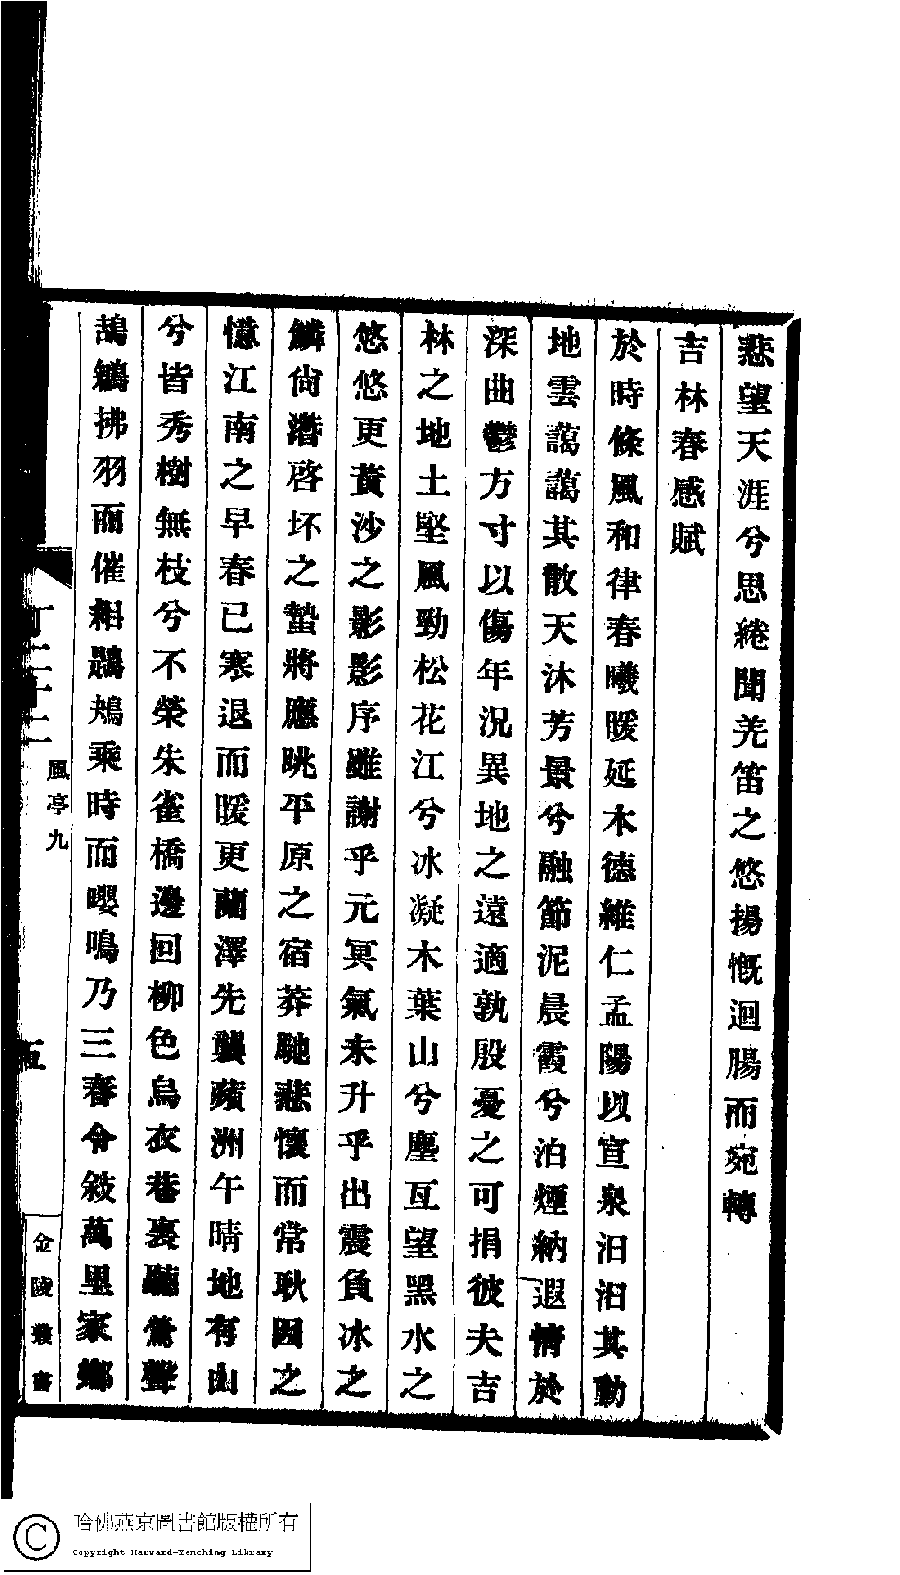 悲望天涯兮思綣聞羌笛之悠揚慨迴腸而宛轉
吉林春感賦
於時條風和律春曦暖延木德維仁孟陽以宣泉汩汩其動
地雲藹藹其散天沐芳景兮融節泥晨霞兮泊煙納遐情於
深曲鬱方寸以傷年況異地之遠適孰殷憂之可捐彼夫吉
林之地土堅風勁松花江兮冰凝木葉山兮塵亙望黑水之
悠悠更黃沙之影影序雖謝乎元冥氣未升乎出震負冰之
鱗尚潛啓坏之蟄將應眺平原之宿莽馳悲懷而常耿因之
憶江南之早春已寒退而暖更蘭澤先襲蘋洲午晴地有山
兮皆秀樹無枝兮不榮朱雀橋邊回柳色烏衣巷裏聽鶯聲
鵠鶬拂羽而催耜鶗鴂乘時而嚶鳴乃三春令敍萬里家鄉
丁二十二
風亭九
五
金陵叢書
哈佛燕京圖書館版權所有
Copyright Harvard-Yenching Library